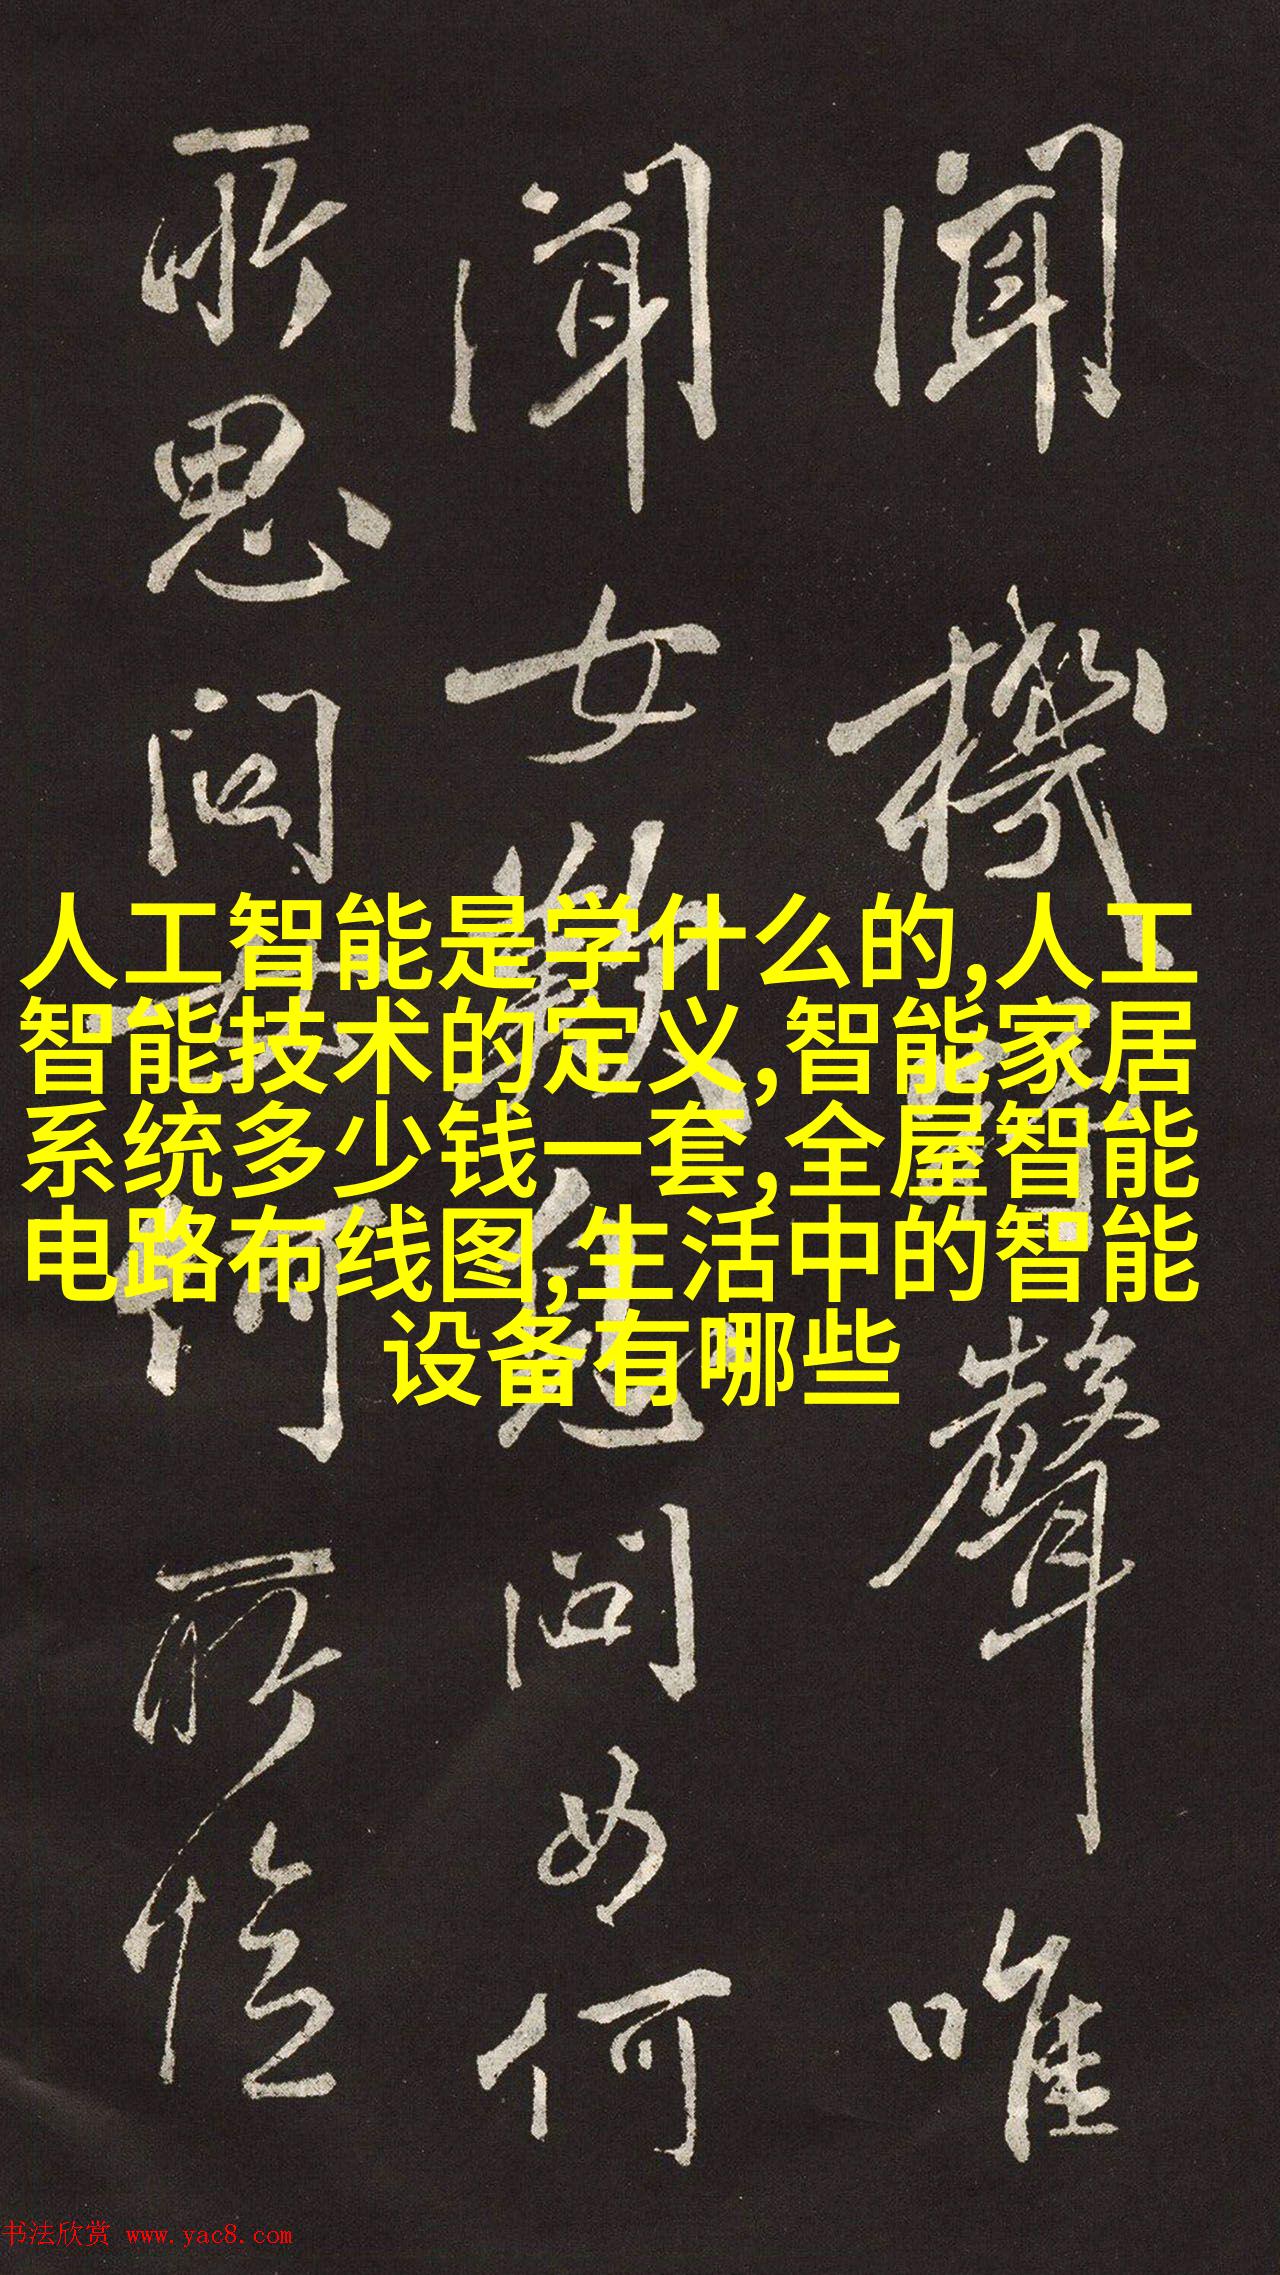 聞機聲唯
聞女歎息問女何
所思問女何所憶
人工智能是学什么的,人工
智能技术的定义,智能家居
系统多少钱一套,全屋智能
电路布线图,生活中的智能
设备有哪些
书法欣赏 www.yac8.com